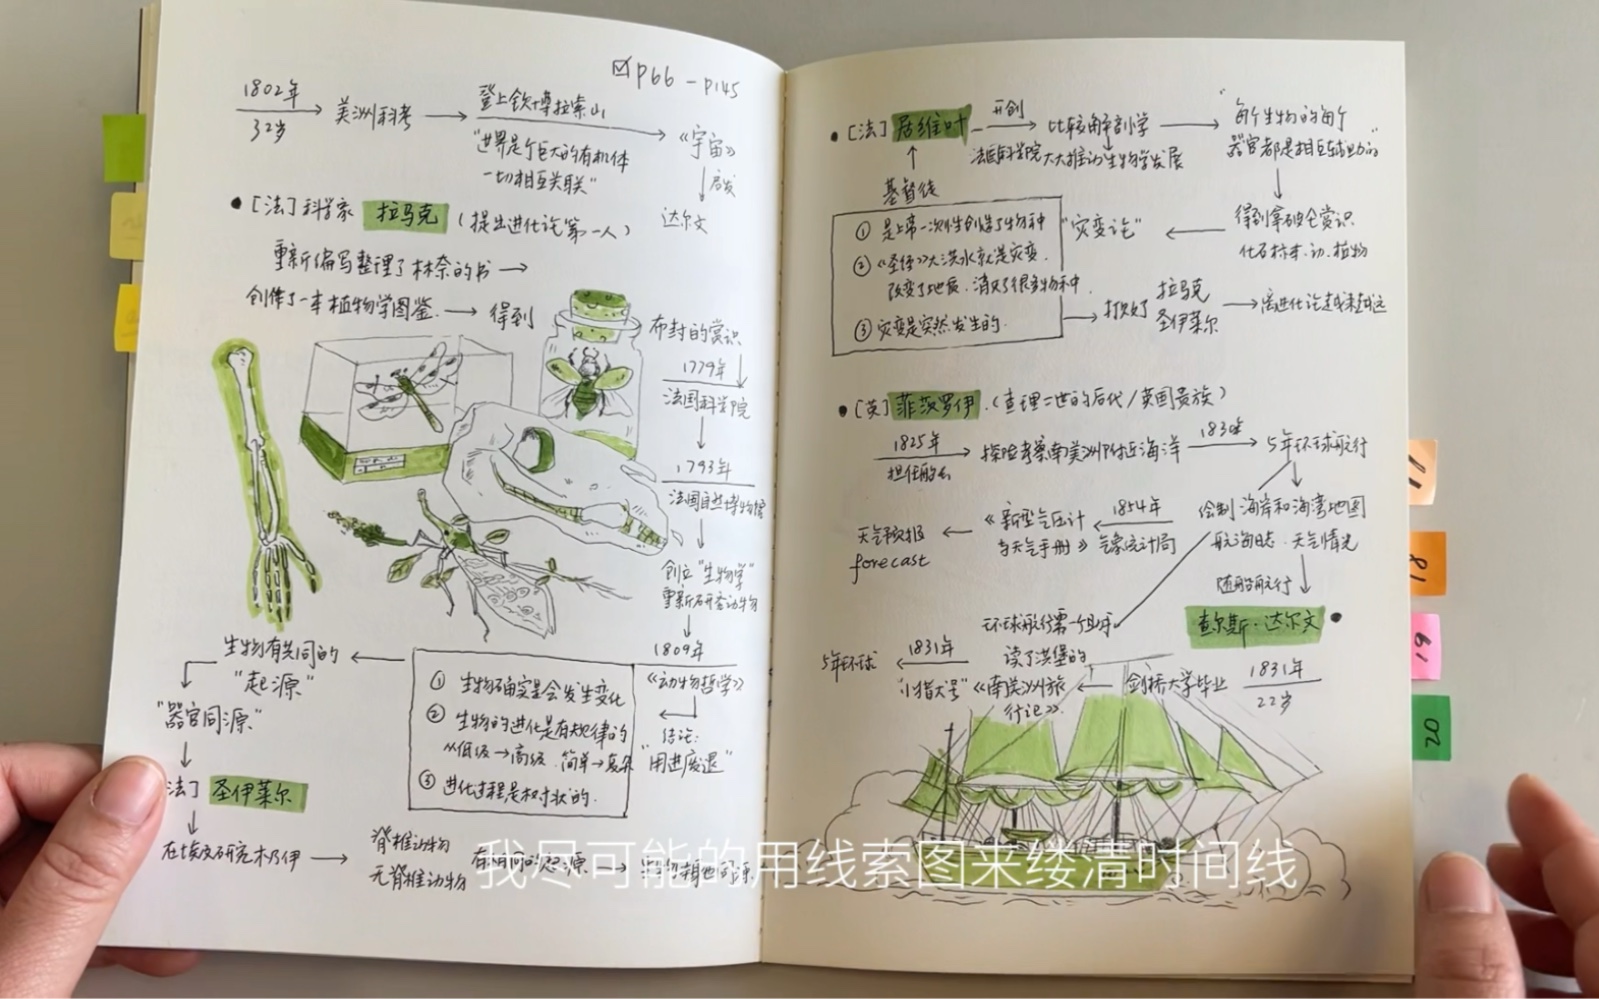 ☑ P66 - P145
1802年
32岁
美洲科考
登上钦博拉索山
"世界是个巨大的有机体
一切相互关联"
《宇宙》
启发
达尔文
• [法]科学家 拉马克 (提出进化论第一人)
重新编写整理了林奈的书
创作了一本植物学图鉴
得到
布封的赏识
1779年
法国科学院
1793年
法国自然博物馆
创立"生物学"
重新研究动物
1809年
《动物哲学》
结论:
"用进废退"
① 生物确实是会发生变化
② 生物的进化是有规律的
从低级→高级 简单→复杂
③ 进化过程是树状的.
生物有共同的
"起源"
"器官同源"
法] 圣伊莱尔
在埃及研究木乃伊
脊椎动物
无脊椎动物
• [法] 居维叶
开创
比较解剖学
法国科学院大大推动生物学发展
"每个生物的每个
器官都是相互辅助的"
得到拿破仑赏识
化石标本.动.植物
"灾变论"
基督徒
① 是上帝一次性创造了生物种
② 《圣经》大洪水就是灾变.
改变了地质.消灭了很多物种.
③ 灾变是突然发生的.
打败了
拉马克
圣伊莱尔
离进化论越来越远
• [英] 菲茨罗伊.(查理二世的后代/英国贵族)
1825年
担任船长
探险考察南美洲附近海洋
1830年
5年环球航行
绘制海岸和海湾地图
航海日志.天气情况
1854年
气象统计局
《新型气压计
与天气手册》
天气预报
forecast
随船航行
查尔斯·达尔文 •
环球航行需一个助手
1831年
22岁
剑桥大学毕业
读了洪堡的
《南美洲旅
行记》
1831年
"小猎犬号"
5年环球
11
18
19
20
我尽可能的用线索图来缕清时间线